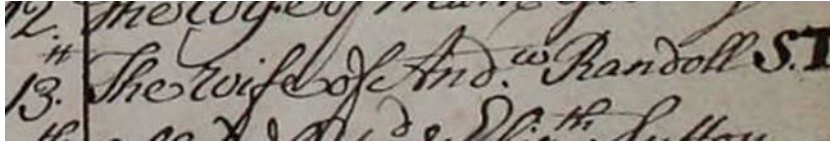 12. The Wife of
13. The Wife of And.w Randoll S.T
th & Eliz th Sutton